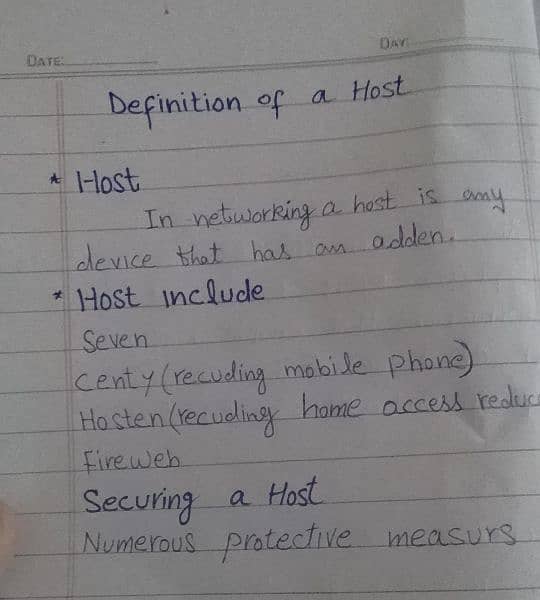 DATE:
DAY:
Definition of a Host
* Host
In networking a host is any
device that has an adden.
* Host include
Seven
Centy (recuding mobile phone)
Hosten (recuding home access reduc
Fireweb
Securing a Host
Numerous protective measurs